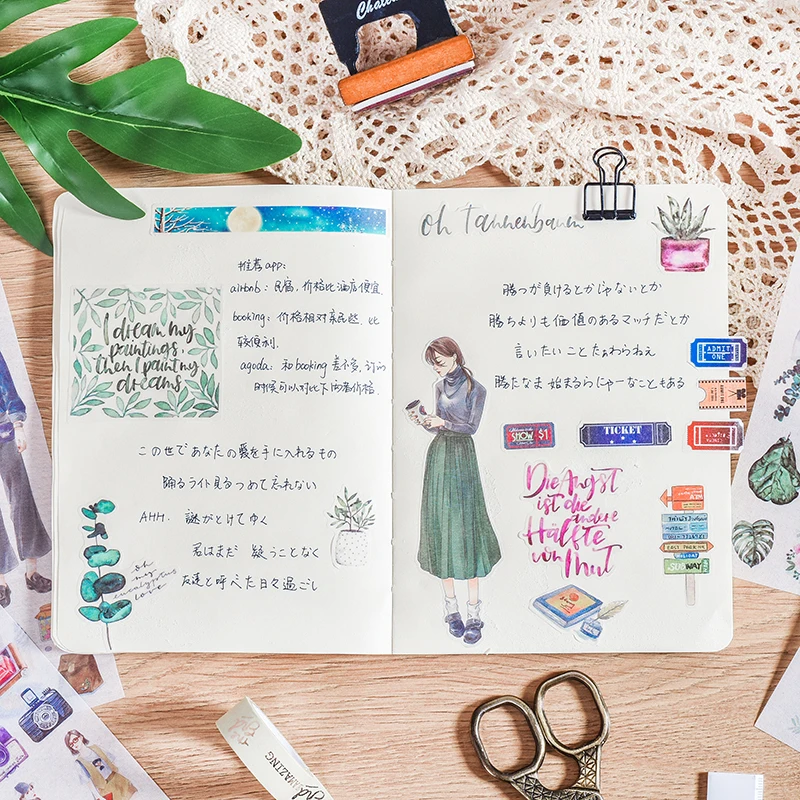 推荐app:
airbnb: 民宿,价格比酒店便宜
booking: 价格相对亲民些,比
较便利.
agoda: 和booking差不多,订的
时候可以对比下的看价格.
I dream my
paintings,
then I paint my
dreams
この世であなたの愛を手に入れるもの
踊るライト見るつめて忘れない
AHH. 謎がとけてゆく
君はまだ 疑うことなく
友達と呼べた日々過ごし
oh
my
eucalyptus
love
oh Tannenbaum
勝つが負けるとかじゃないとか
勝ちよりも価値のあるマッチだとか
言いたいこと
勝たなま 始まるらにゃーなこともある
ADMIT
ONE
SHOW $1
TICKET
Die Angst
ist die
andere
Hälfte
von Mut
SUBWAY
AMAZING